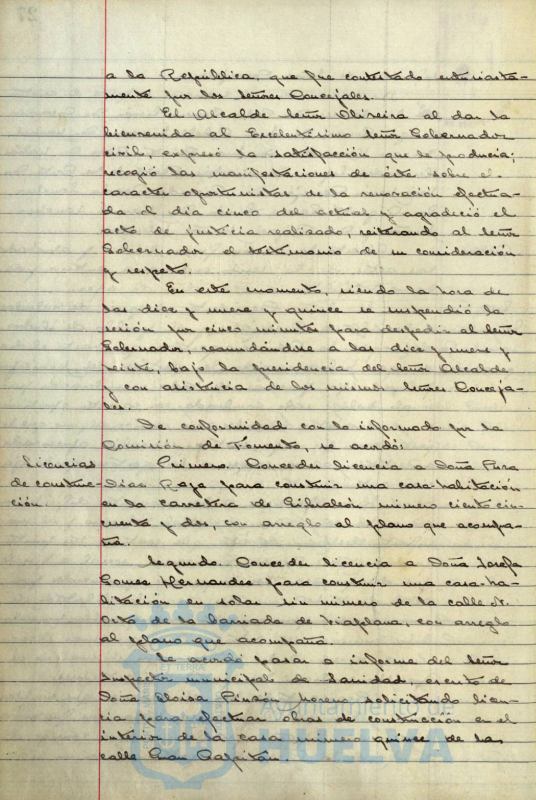 a la República, que fue contestado entusiasta-
mente por los señores Concejales.
El Alcalde señor Oliveira al dar la
bienvenida al Excelentísimo señor Gobernador
civil, expresó la satisfacción que le producía;
recogió las manifestaciones de éste sobre el
caracter oportunista, de la renovación efectua-
da el dia cinco del actual y agradeció el
acto de justicia realizado, reiterando al señor
Gobernador el testimonio de su consideración
y respeto.
En este momento, siendo la hora de
las diez y nueve y quince se suspendió la
sesión por cinco minutos para despedir al señor
Gobernador, reanudándose a las diez y nueve y
veinte, bajo la presidencia del señor Alcalde
y con asistencia de los mismos señores Conceja-
les.
De conformidad con lo informado por la
Comisión de Fomento, se acordó:
Licencias
de construc-
ción.
Primero. Conceder licencia a Doña Pura
Diaz para construir una casa-habitación
en la carretera de Gibraleón número ciento cin-
cuenta y dos, con arreglo al plano que acompa-
ña.
Segundo. Conceder licencia a Doña Josefa
Gomez Hernandez para construir una casa-ha-
bitación en solar sin número de la calle
de la barriada de Viaplana, con arreglo
al plano que acompaña.
Se acordó pasar a informe del señor
Inspector municipal de Sanidad, escrito de
Doña Eloisa Pinzón Moreno solicitando licen-
cia para efectuar obras de construcción en el
interior de la casa número quince de la
calle Gran Capitán.
Ayuntamiento de
HUELVA